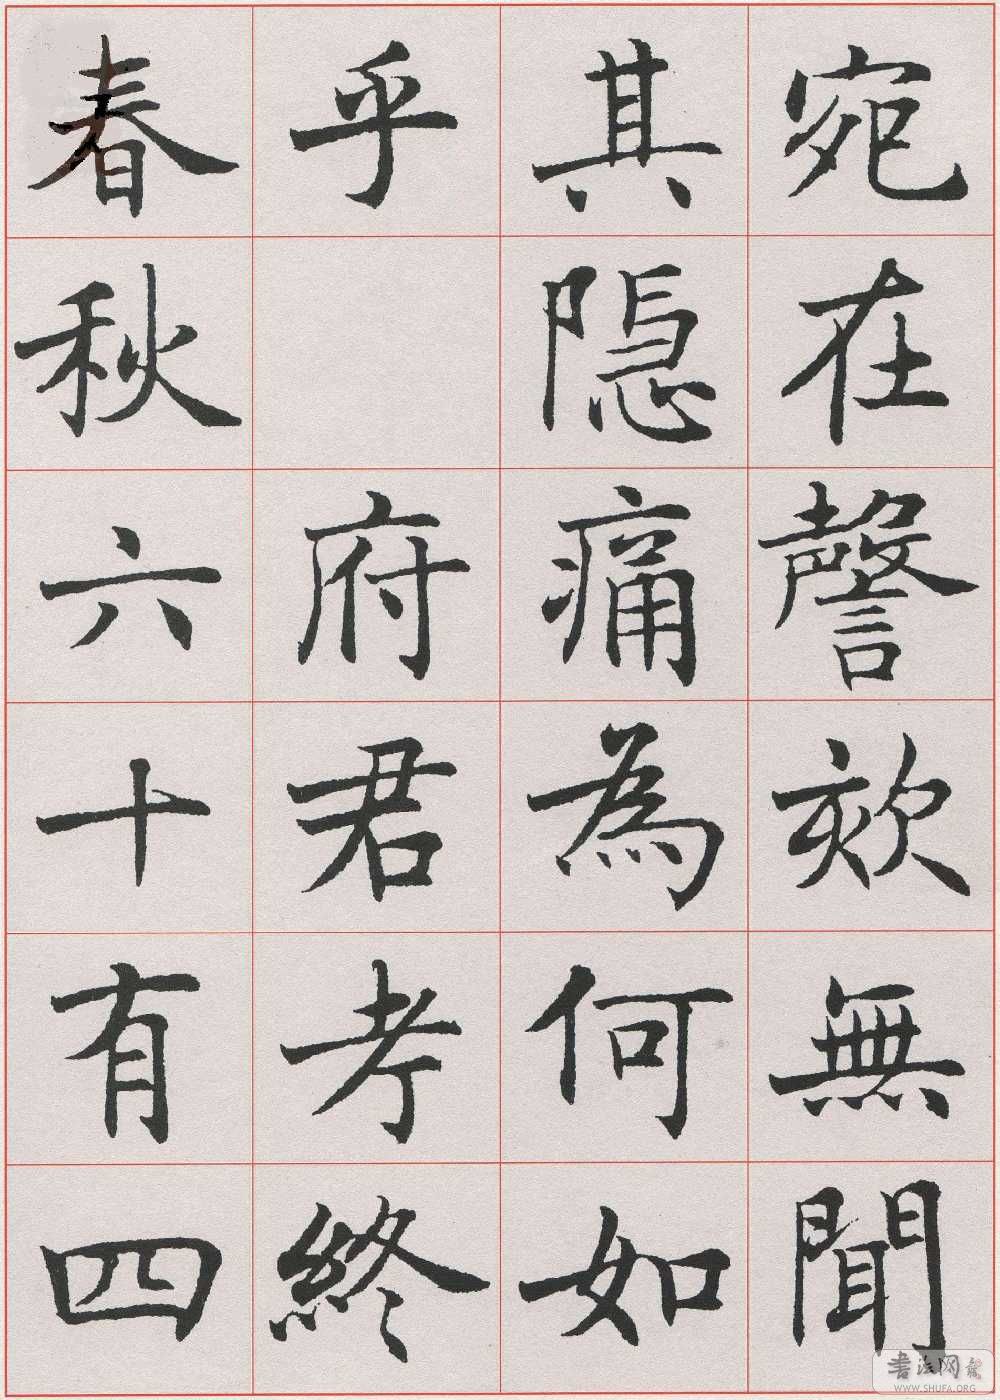 宛在謦欬無聞
其隱痛為何如
乎 府君考終
春秋六十有四
書法网
WWW.SHUFA.ORG